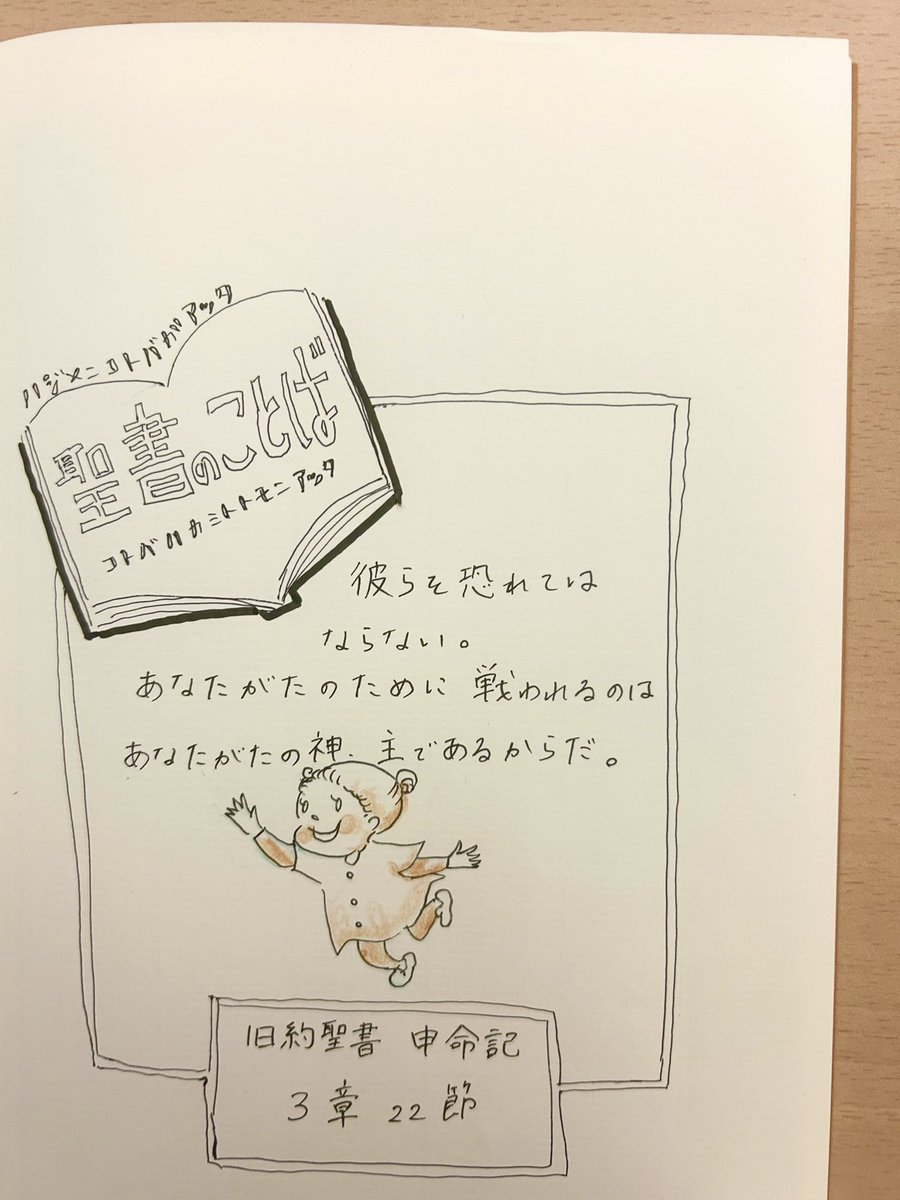 ハジメニコトバガアッタ
聖書のことば
コトバハカミトトモニアッタ
彼らを恐れては
ならない。
あなたがたのために戦われるのは
あなたがたの神、主であるからだ。
旧約聖書 申命記
3章22節